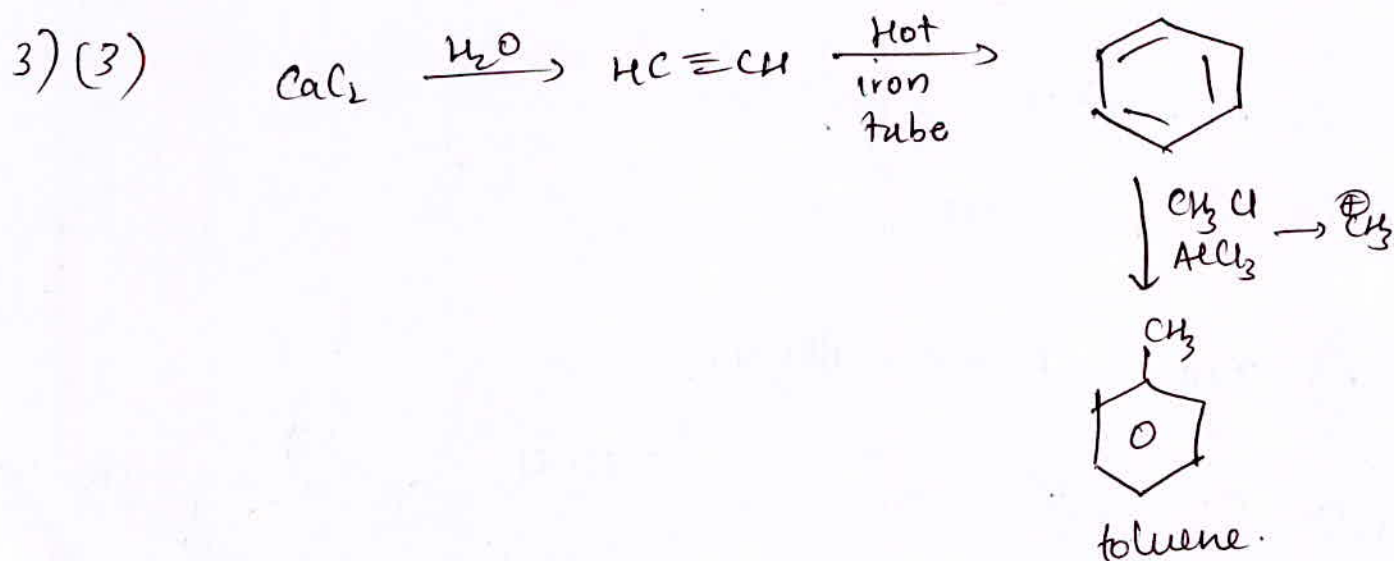 3)(3) CaC₂ H₂O → HC≡CH Hot iron tube →
CH₃Cl
AlCl₃ → ⊕CH₃
CH₃
toluene.